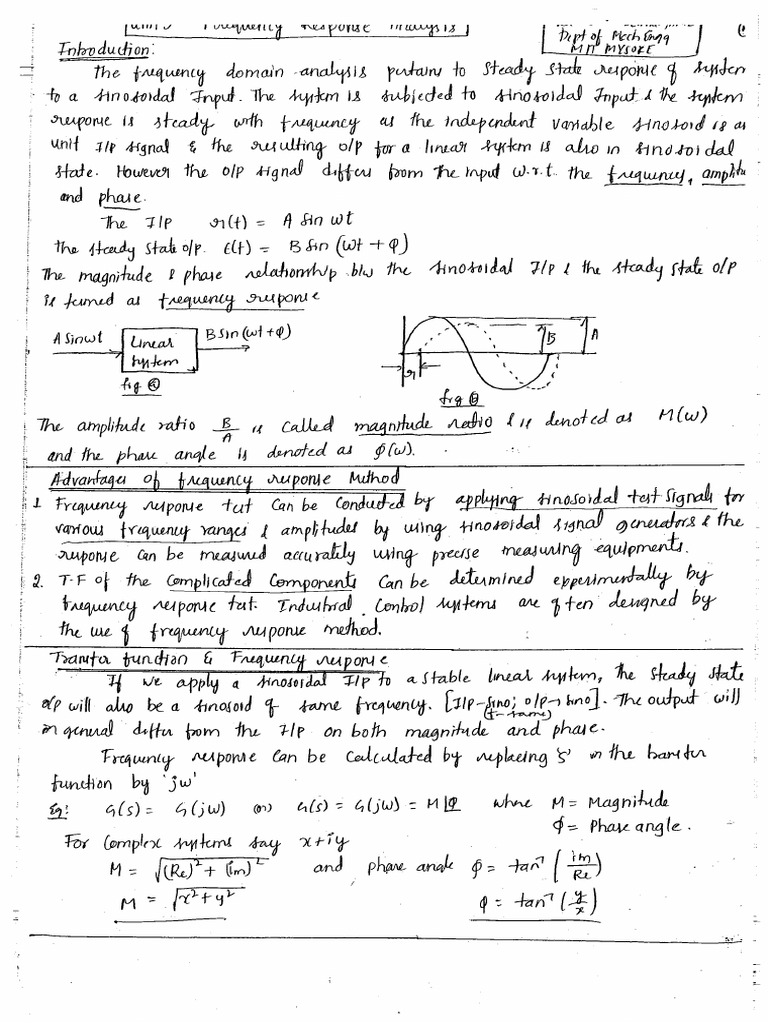 Unit 5 Frequency Response Analysis
Dept of Mech Engg
MIT MYSORE
Introduction:
The frequency domain analysis pertains to steady state response of system
to a sinosoidal Input. The system is subjected to sinosoidal Input & the system
response is steady with frequency as the independent variable sinosoid is as
unit I/P signal & the resulting o/p for a linear system is also in sinosoidal
state. However the o/p signal differs from the input w.r.t. the frequency, amplitu
and phase.
The I/P r(t) = A sin wt
The steady state o/p. c(t) = B sin (wt + φ)
The magnitude & phase relationship b/w the sinosoidal I/P & the steady state o/p
is termed as frequency response
A sinwt Linear system B sin (wt + φ)
B A
fig ⓐ
fig ⓑ
The amplitude ratio B/A is called magnitude ratio & is denoted as M(w)
and the phase angle is denoted as φ(w).
Advantages of frequency response Method
1. Frequency response test can be conducted by applying sinosoidal test signals for
various frequency ranges & amplitudes by using sinosoidal signal generators & the
response can be measured accurately using precise measuring equipments.
2. T.F of the complicated components can be determined experimentally by
frequency response test. Industrial control systems are often designed by
the use of frequency response method.
Transfer function & Frequency response
If we apply a sinosoidal I/P to a stable linear system, the steady state
o/p will also be a sinosoid of same frequency. [I/P-sino; o/p→sino]. The output will
(f-same)
in general differ from the I/P on both magnitude and phase.
Frequency response can be calculated by replacing 's' in the transfer
function by 'jw'
Eg: G(s) = G(jw) or G(s) = G(jw) = M⌊φ where M = Magnitude
φ = Phase angle.
For complex systems say x+iy
M = √(Re)² + (im)² and phase angle φ = tan⁻¹ (im/Re)
M = √x² + y² φ = tan⁻¹ (y/x)